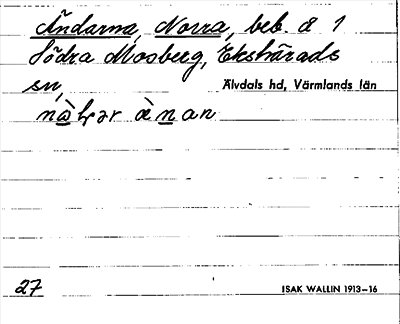 Ändarna, Norra, beb. å 1
Södra Mosberg, Ekshärads
sn,
Älvdals hd, Värmlands län
27
ISAK WALLIN 1913–16